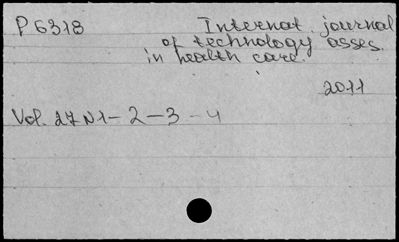 P 6318 Internat. journal
of technology asses.
in health care.
2011
Vol. 27 N1-2-3-4